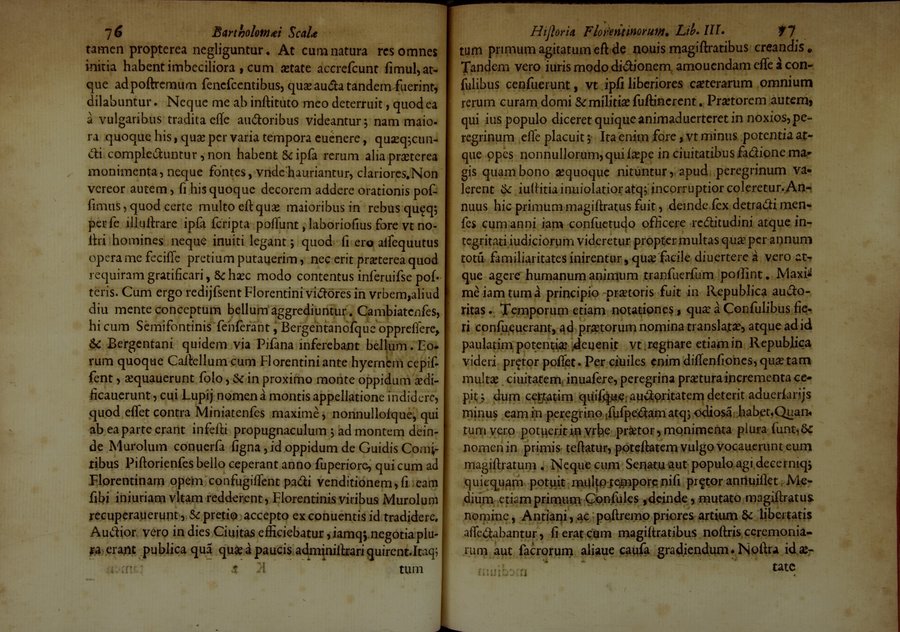 76 Bartholomæi Scalæ
tamen propterea negliguntur. At cum natura res omnes
initia habent imbeciliora, cum ætate accrescunt simul, at-
que ad postremum senescentibus, quæ aucta tandem fuerint,
dilabuntur. Neque me ab instituto meo deterruit, quod ea
à vulgaribus tradita esse auctoribus videantur; nam maio-
ra quoque his, quæ per varia tempora euenere, quæq; cun-
cti complectuntur, non habent & ipsa rerum alia præterea
monimenta, neque fontes, vnde hauriantur, clariores. Non
vereor autem, si his quoque decorem addere orationis pos-
simus, quod certe multo est quæ maioribus in rebus quęq;
per se illustrare ipsa scripta possunt, laboriosius fore vt no-
stri homines neque inuiti legant; quod si ero assequutus
operæ me fecisse pretium putauerim, nec erit præterea quod
requiram gratificari, & hæc modo contentus inseruisse pos-
teris. Cum ergo redijssent Florentini victores in vrbem, aliud
diu mente conceptum bellum aggrediuntur. Cambiatenses,
hi cum Semifontinis senserant, Bergentanosque oppressere,
& Bergentani quidem via Pisana inferebant bellum. Eo-
rum quoque Castellum cum Florentini ante hyemem cepis-
sent, æquauerunt solo, & in proximo monte oppidum ædi-
ficauerunt, cui Lupij nomen à montis appellatione indidere,
quod esset contra Miniatenses maximè, nonnullosque, qui
ab ea parte erant infesti propugnaculum; ad montem dein-
de Murolum conuersa signa, id oppidum de Guidis Comi-
tibus Pistorienses bello ceperant anno superiore, qui cum ad
Florentinam opem confugissent pacti venditionem, si eam
sibi iniuriam vltam redderent, Florentinis viribus Murolum
recuperauerunt, & pretio accepto ex conuentis id tradidere.
Auctior vero in dies Ciuitas efficiebatur, iamq; negotia plu-
ra erant publica quã quæ à paucis administrari quirent. Itaq;
K 2 tum
Historia Florentinorum. Lib. III. 77
tum primum agitatum est de nouis magistratibus creandis.
Tandem vero iuris modo dictionem amouendam esse à con-
sulibus censuerunt, vt ipsi liberiores cæterarum omnium
rerum curam domi & militiæ sustinerent. Prætorem autem,
qui ius populo diceret quique animaduerteret in noxios, pe-
regrinum esse placuit; Ita enim fore, vt minus potentia at-
que opes nonnullorum, qui sæpe in ciuitatibus factione ma-
gis quam bono æquoque nituntur, apud peregrinum va-
lerent & iustitia inuiolatior atq; incorruptior coleretur. An-
nuus hic primum magistratus fuit, deinde sex detracti men-
ses cum anni iam consuetudo officere rectitudini atque in-
tegritati iudiciorum videretur propter multas quæ per annum
totũ familiaritates inirentur, quæ facile diuertere à vero at-
que agere humanum animum transuersum possint. Maxi-
mè iam tum à principio prætoris fuit in Republica aucto-
ritas. Temporum etiam notationes, quæ à Consulibus fie-
ri consueuerant, ad prætorum nomina translatæ, atque ad id
paulatim potentiæ deuenit vt regnare etiam in Republica
videri prętor posset. Per ciuiles enim dissensiones, quæ tam
multæ ciuitatem inuasere, peregrina prætura incrementa ce-
pit; dum certatim quisque auctoritatem deterit aduersarijs
minus eam in peregrino suspectam atq; odiosã habet. Quan-
tum vero potuerit in vrbe prætor, monimenta plura sunt, &
nomen in primis testatur, potestatem vulgo vocauerunt eum
magistratum. Neque cum Senatu aut populo agi decerniq;
quicquam potuit multo tempore nisi prętor annuisset. Me-
dium etiam primum Consules, deinde, mutato magistratus
nomine, Antiani, ac postremo priores artium & libertatis
assectabantur, si erat cum magistratibus nostris ceremonia-
rum aut sacrorum aliaue causa gradiendum. Nostra id æ-
tate